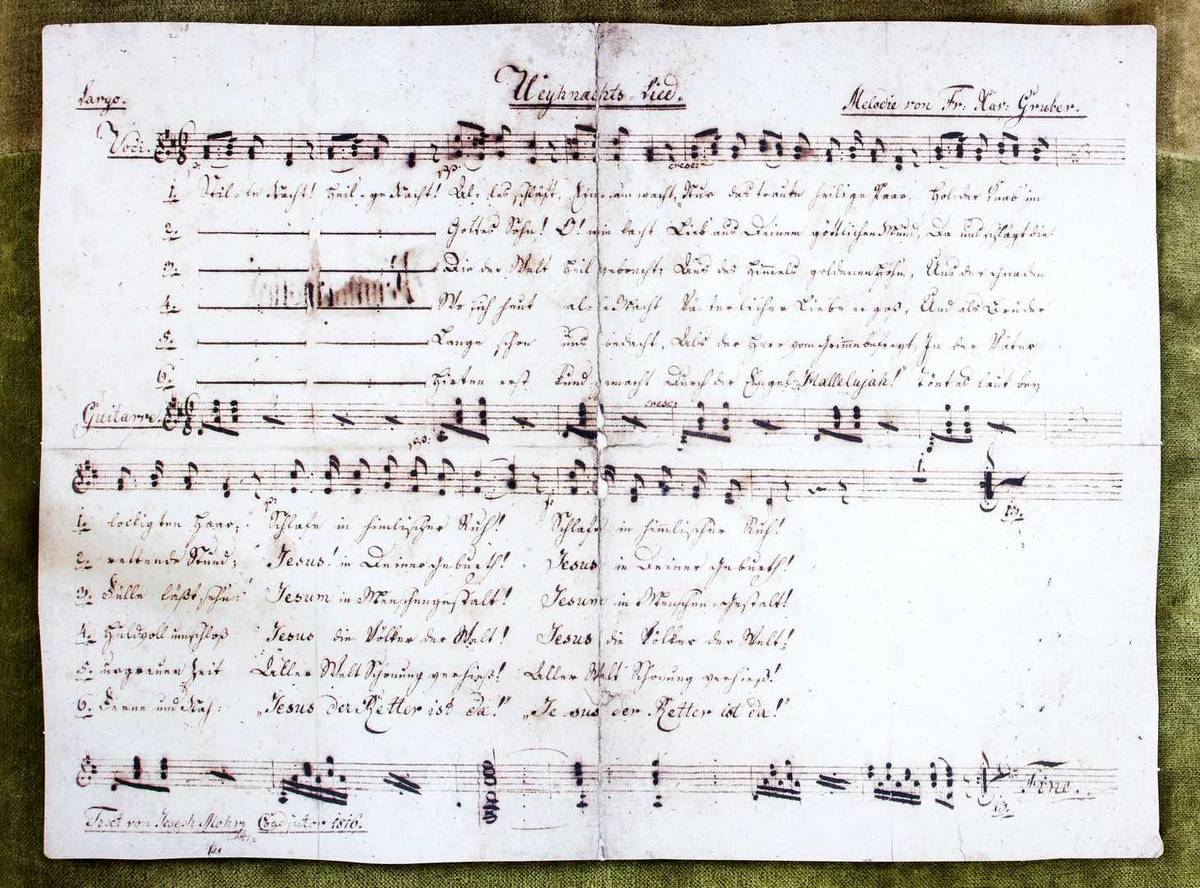 Weyhnachts-Lied.
Largo.
Melodie von Fr. Xav: Gruber.
Voci.
cresc:
1. Stil-le Nacht! Heil-ge Nacht! Al-les schläft, Einsam wacht, Nur das traute heilige Paar, Holder Knab im
2. Gottes Sohn! O! wie lacht Lieb aus Deinem göttlichen Mund, Da uns schlägt die
3. Die der Welt Heil gebracht; Aus des Himmels goldenen Höhn, Uns der Gnaden
4. Wo sich heut alle Macht Väterlicher Liebe ergoß, Und als Bruder
5. Lange schon uns bedacht, Als der Herr vom Grimme befreyt, In der Väter
6. Hirten erst kundgemacht Durch der Engel „Hallelujah!" Tönt es laut bey
Guitarre.
cresc:
1. lockigten Haar; Schlafe in himlischer Ruh! Schlafe in himmlischer Ruh!
2. rettende Stund; Jesus! in Deiner Geburth! Jesus in Deiner Geburth!
3. Fülle läßt sehn: Jesum in Menschengestalt! Jesum in Menschen-Gestalt!
4. Huldvoll umschloß Jesus die Völker der Welt! Jesus die Völker der Welt!
5. urgrauer Zeit Aller Welt Schonung verhieß! Aller Welt Schonung verhieß!
6. Ferne und Nah: „Jesus der Retter ist da!" „Jesus der Retter ist da!"
Fine.
Text von Joseph Mohr Coadjutor 1816.